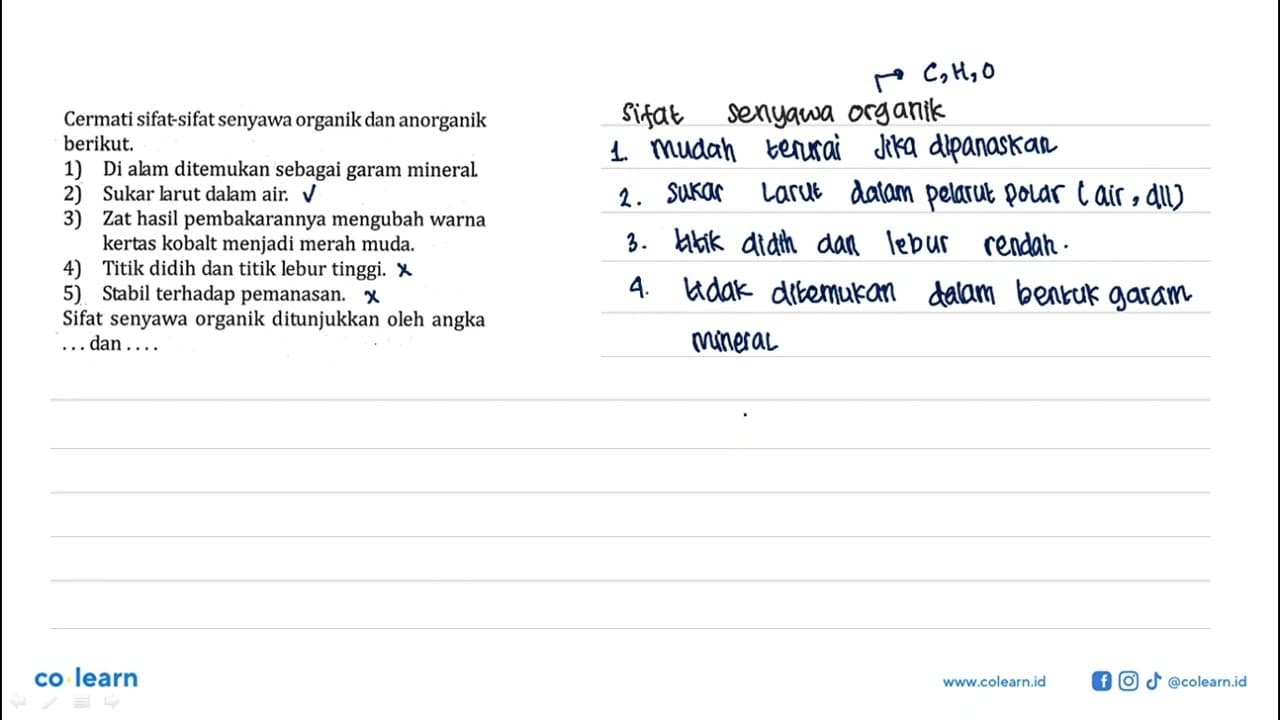 Cermati sifat-sifat senyawa organik dan anorganik
berikut.
1) Di alam ditemukan sebagai garam mineral.
2) Sukar larut dalam air. ✓
3) Zat hasil pembakarannya mengubah warna
kertas kobalt menjadi merah muda.
4) Titik didih dan titik lebur tinggi. x
5) Stabil terhadap pemanasan. x
Sifat senyawa organik ditunjukkan oleh angka
... dan ....
↱ C, H, O
Sifat senyawa organik
1. mudah terurai jika dipanaskan
2. sukar larut dalam pelarut polar (air, dll)
3. titik didih dan lebur rendah.
4. tidak ditemukan dalam bentuk garam
mineral
co learn
www.colearn.id
@colearn.id